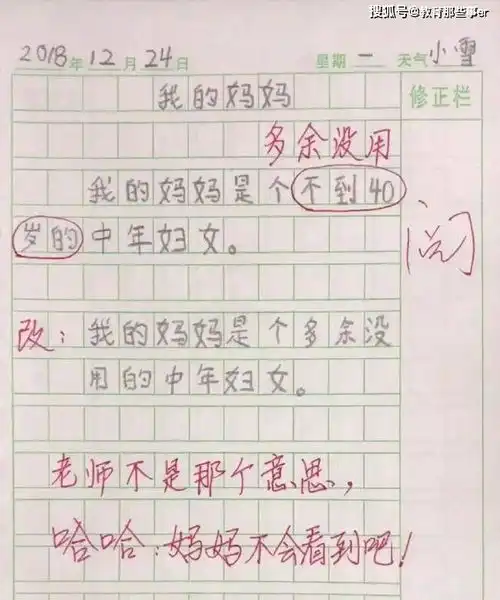 搜狐号@教育那些事er
2018年12月24日 星期一 天气小雪
我的妈妈 修正栏
多余没用
我的妈妈是个不到40
岁的中年妇女。
阅
改：我的妈妈是个多余没
用的中年妇女。
老师不是那个意思，
哈哈：妈妈不会看到吧！